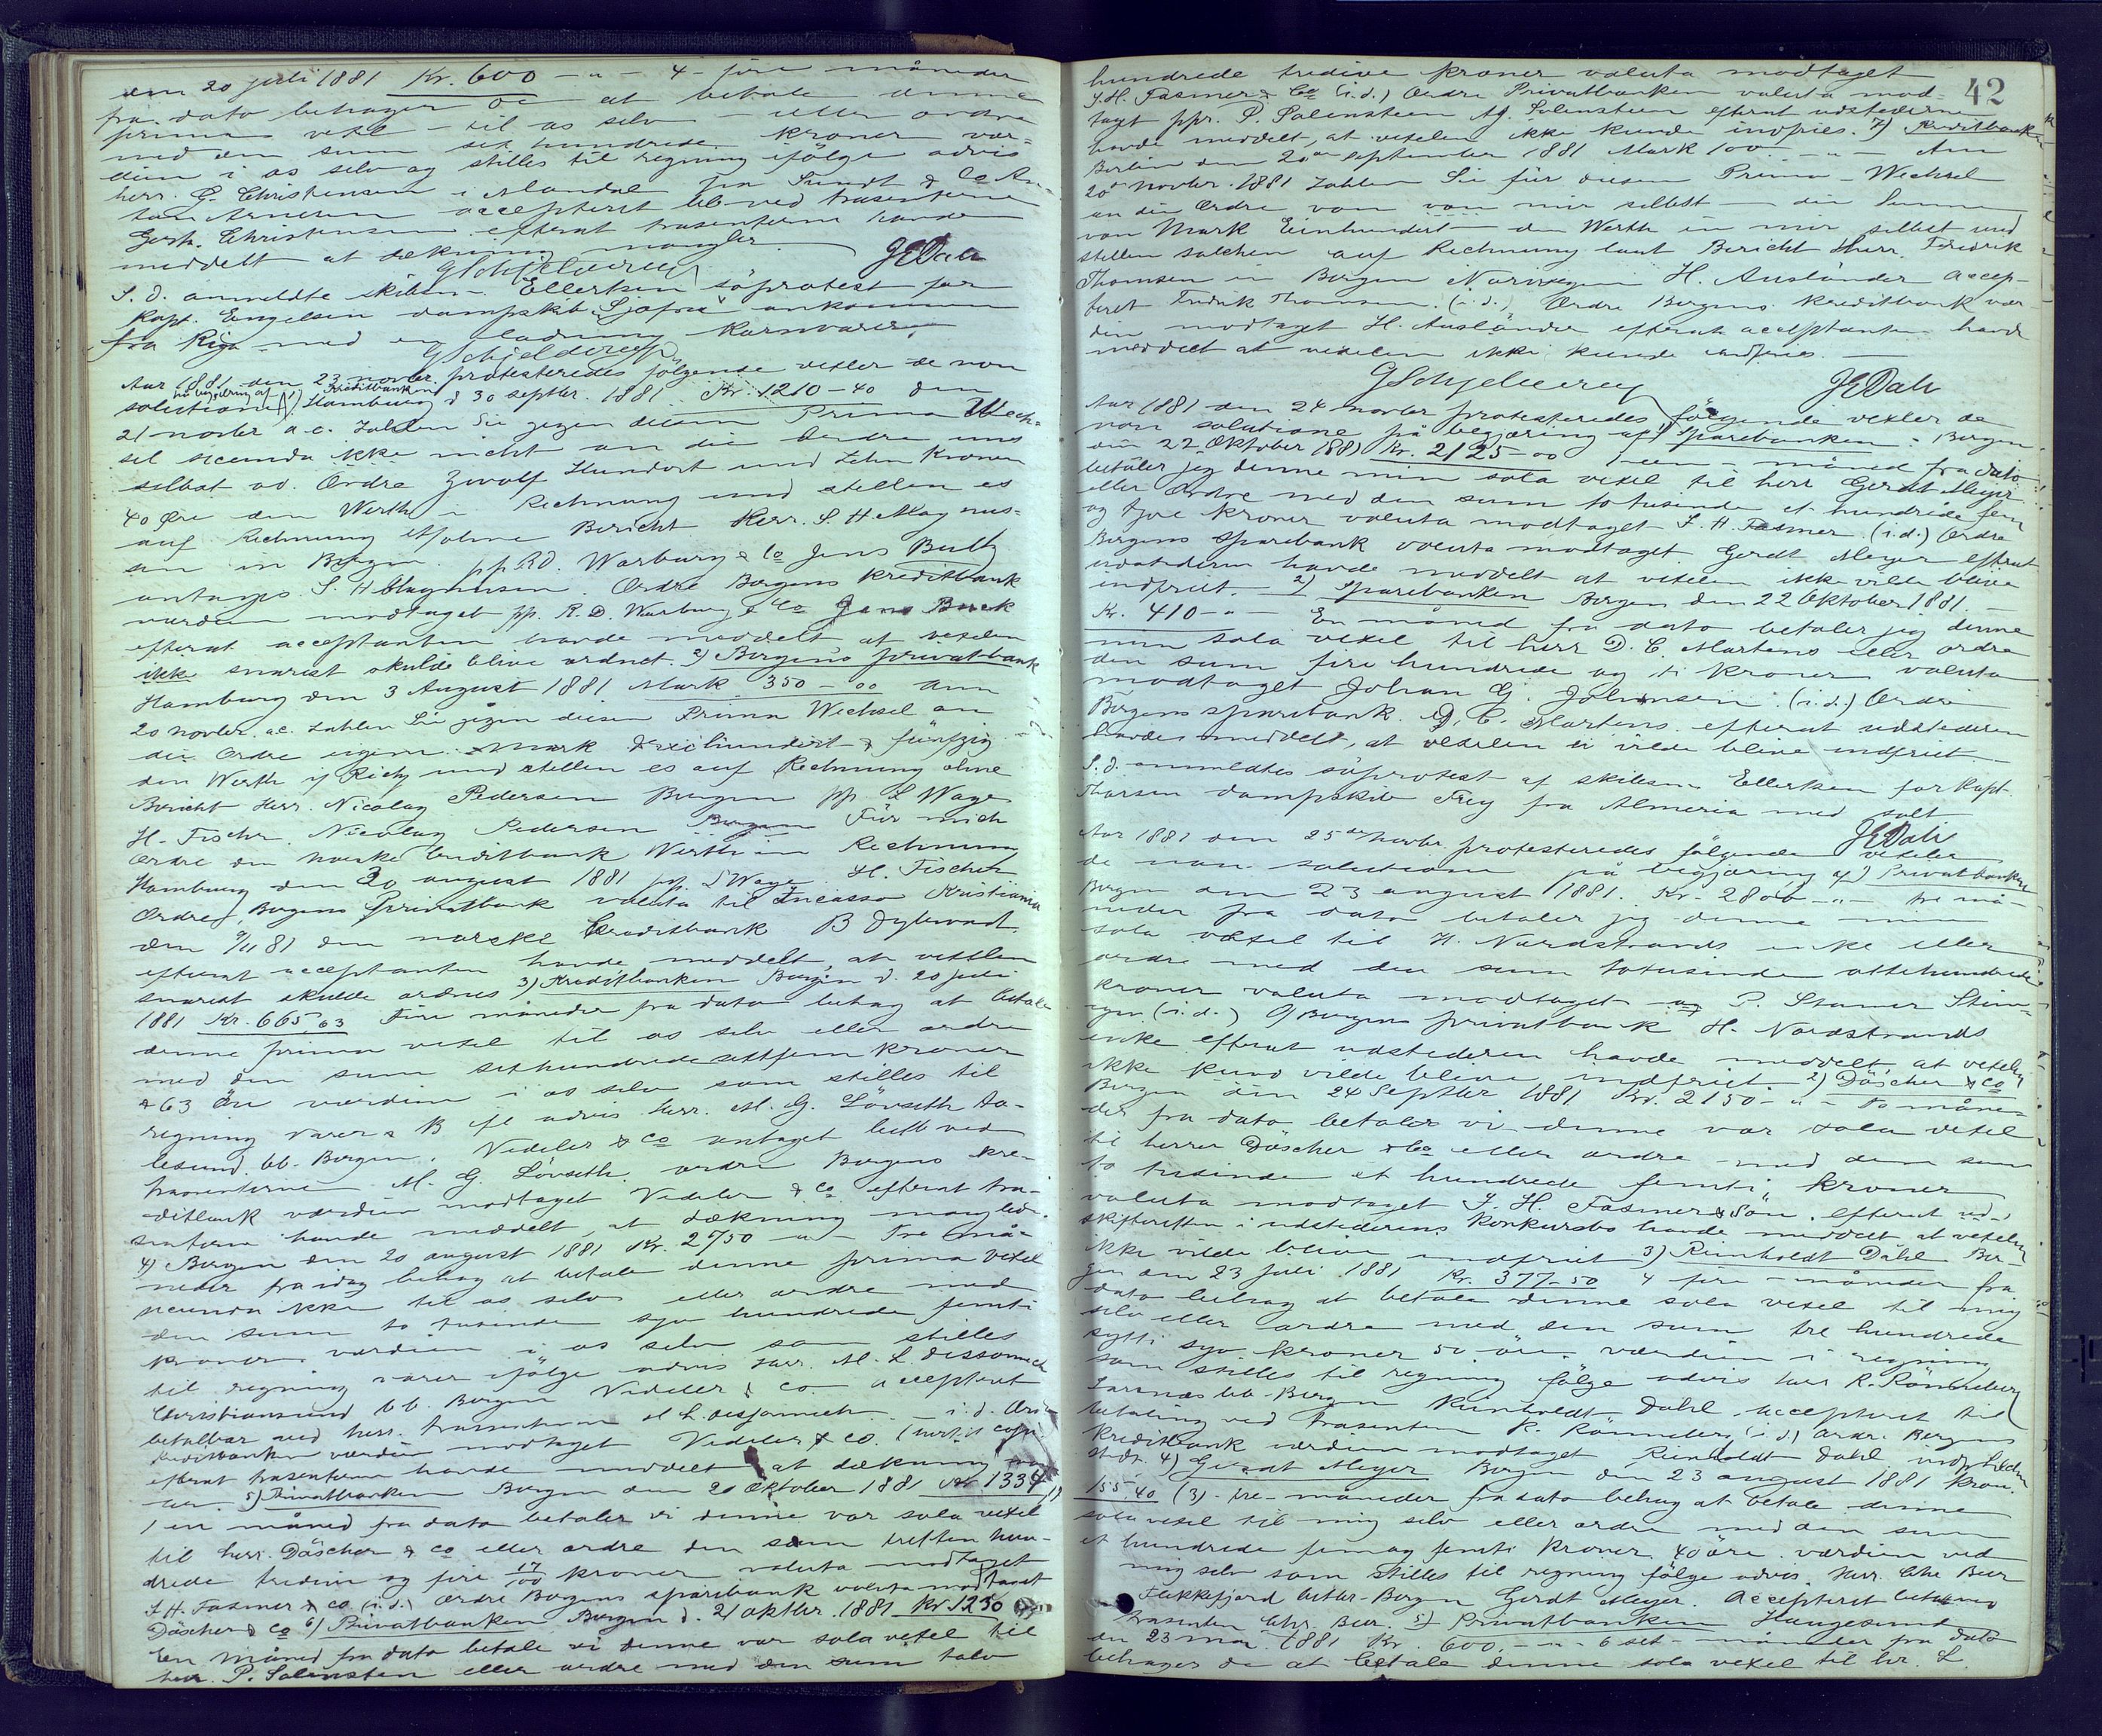 den 20 juli 1881 Kr. 600 - " - 4 - fire måneder
fra dato behager De at betale denne
prima vexel - til os selv - eller ordre
med den sum sex hundrede kroner vær-
dien i os selv og stilles til regning ifölge advis
herr. G. Christensen i Mandal fra Sundt & Co An-
ton Arnesen accepteret bb ved trasenterne
Gerh. Christensen efterat trasenterne havde
meddelt at dækning mangler.
GSchjelderup JEDahl
S. d. anmeldte skibsm. Ellertsen söprotest for
kapt. Engelsen dampskib "Sjofna" ankommen
fra Riga med en ladning Kornvarer.
GSchjelderup
Aar 1881 den 23 novbr. protesteredes fölgende vexler de non
på begjæring af Kreditbanken
solutione 1) Hamburg d 30 septbr. 1881 Kr. 1210-40 den
21 novbr a.c. Zahlen Sie gegen diesen Prima Wech-
sel secunda ikke nicht an die Ordre uns
selbst od. Ordre Zwolf Hundert und Zehn Kronen
40 Øre den Werth in Rechnung und stellen es
auf Rechnung ohne Bericht Herr. S. H. Magnus-
sen in Bergen. pp R.D. Warburg & Co Jens Bull
antages S. H Magnusen. Ordre Bergens Kreditbank
værdien modtaget pp. R. D. Warburg & Co Jens
efterat acceptanten havde meddelt at vexelen
ikke snarest skulde blive ordnet. 2) Bergens privatbank
Hamburg den 3 August 1881 Mark 350 - 00 Am
20 novbr. ac. Zahlen Sie gegen diesen Prima Wechsel an
die Ordre eigene Mark Dreihundert & fünfzig
den Werth in Rechg und stellen es auf Rechnung ohne
Bericht Herr. Nicolay Pedersen Bergen pp L Wage
H. Fischer Nicolay Pedersen Bergen Für mich
Ordre den norske Creditbank Werth in Rechnung
Hamburg den 30 august 1881 pp. L Wage. H. Fischer
Ordre Bergens privatbank valuta til Incasso Kristiania
den 9/11 81 den norske Creditbank B Dybwad.
efterat acceptanten havde meddelt, at vexelen
snarest skulde ordnes 3) Kreditbanken Bergen d. 20 juli
1881 Kr. 665,63 Fire måneder fra dato behag at betale
denne prima vexel til os selv eller ordre
med den sum sexhundrede sextifem kroner
& 63 öre værdien i os selv som stilles til
regning varer & B ifl advis herr. M. G. Lövseth Aa-
lesund. bb. Bergen. Vedeler & Co antaget betb ved
trasenterne M. G. Lövseth. ordre Bergens kre-
ditbank værdien modtaget Vedeler & Co efterat tra-
senterne havde meddelt, at dækning mangled.
4) Bergen den 20 august 1881 Kr. 2750 - " - Tre må-
neder fra idag behag at betale denne prima vexel
secunda ikke til os selv eller ordre med
den sum to tusinde syv hundrede femti
kroner værdien i os selv som stilles
til regning varer ifölge advis herr. M. L.
Christiansund bb. Bergen Vedeler & Co accepteret
betalbar ved herr. trasenterne M L. i. d. Ordre
kreditbanken værdien modtaget Vedeler & Co.
efterat trasenterne havde meddelt at dækning
5) Privatbanken Bergen den 20 Oktober 1881 Kr 1334,17
1 en måned fra dato betaler vi denne vor sola vexel
til herr. Däscher & Co eller ordre den sum tretten hun-
drede tredive og fire 17/100 kroner valuta modtaget
J.H. Fasmer & Co (i.d.) ordre Bergens sparebank valuta modtaget
Däscher & Co 6) Privatbanken Bergen d. 21 oktbr. 1881 Kr 1230
En måned fra dato betale vi denne vor sola vexel til
herr. P. Salensten eller ordre med den sum tolv
42
hundrede tredive kroner valuta modtaget
J.H. Fasmer & Co (i.d.) Ordre Privatbanken valuta mod-
taget ppr. P. Salensteen Salensteen efterat udstederne
havde meddelt, at vexelen ikke kunde indfries. 7) Kreditbanken
Berlin den 20 september 1881 Mark 100 - " - Am
20 Novbr. 1881 Zahlen Sie für diesen Prima - Wechsel
an die Ordre von von mir selbst - die Summe
von Mark Einhundert - den Werth in mir selbst und
stellen solchen auf Rechnung laut Bericht Herr. Fredrik
Thomsen in Bergen Norwegen H. Ausländer accep-
teret Fredrik Thomsen. (i.d.) Ordre Bergens kreditbank vær-
dien modtaget H. Ausländer efterat acceptanten havde
meddelt at vexelen ikke kunde indfries. -
GSchjelderup JEDahl
Aar 1881 den 24 novbr protesteredes fölgende vexler de
non solutione på begjæring af 1) Sparebanken - Bergen
den 22 Oktober 1881 Kr. 2125-00 1 een - måned fra dato
betaler jeg denne min sola vexel til herr Gerdt Meyer
eller Ordre med den sum to tusinde et hundrede fem
og tyve kroner valuta modtaget J. H. Fasmer (i.d.) Ordre
Bergens Sparebank valuta modtaget Gerdt Meyer efterat
udstederen havde meddelt at vexelen ikke vilde blive
indfriet. - 2) Sparebanken Bergen den 22 Oktober 1881. -
Kr. 410 - " - En måned fra dato betaler jeg denne
min sola vexel til herr D. C. Martens eller ordre
den sum fire hundrede og ti kroner valuta
modtaget Johan G. Johansen (i.d.) Ordre
Bergens sparebank. D. C. Martens efterat udstederen
havde meddelt, at vexelen ei vilde blive indfriet -
S. d. anmeldtes söprotest af skibsm. Ellertsen for kapt.
Thorsen dampskib Frey fra Almeria med salt
JEDahl
Aar 1881 den 25de Novbr. protesteredes fölgende vexeler
de non solutione på begjæring af 1) Privatbanken
Bergen den 23 august 1881. Kr. 2800 - " - tre må-
neder fra dato betaler jeg denne min
sola vexel til H. Nordstrands enke eller
ordre med den sum totusinde ottehundrede
kroner valuta modtaget P. Stamer Stein-
gen (i.d.) O/ Bergens privatbank H. Nordstrands
enke efterat udstederen havde meddelt, at vexelen
ikke kund vilde blive indfriet. 2) Däscher & Co
Bergen den 24 Septbr 1881 Kr. 2150 - " - To måne-
der fra dato betaler vi denne vor sola vexel
til herrer Däscher & Co eller ordre med den sum
to tusinde et hundrede femti kroner
valuta modtaget J. H. Fasmer & Sön. efterat
skifteretten i udstederens Konkursbo havde meddelt at vexelen
ikke vilde blive indfriet 3) Reinholdt Dahl Ber-
gen den 23 juli 1881 Kr. 377-50 4 fire - måneder fra
dato behag at betale denne sola vexel til mig
selv eller ordre med den sum tre hundrede
sytti syv kroner 50 öre. værdien i regning
som stilles til regning fölge advis herr R. Rönneberg
bb. Bergen Reinholdt Dahl. accepteret til
betaling ved trasenten R. Rönneberg (i.d.) ordr. Bergens
kreditbank værdien modtaget Reinholdt Dahl
4) Gerdt Meyer Bergen den 23 august 1881 Kron.
155,40 (3) - tre - måneder fra dato behag at betale denne
sola vexel til mig selv eller ordre med den sum
et hundrede fem og femti kroner. 40 öre. værdien ved
mig selv som stilles til regning fölge advis. herr. Chr Beer
Flekkefjord betbr. Bergen Gerdt Meyer. Accepteret ved
trasenten Chr. Beer. 5) Privatbanken Haugesund
den 23 Mai 1881 Kr. 600. - " - 6 sex - måneder fra dato
behager De at betale denne sola vexel til hr. L.